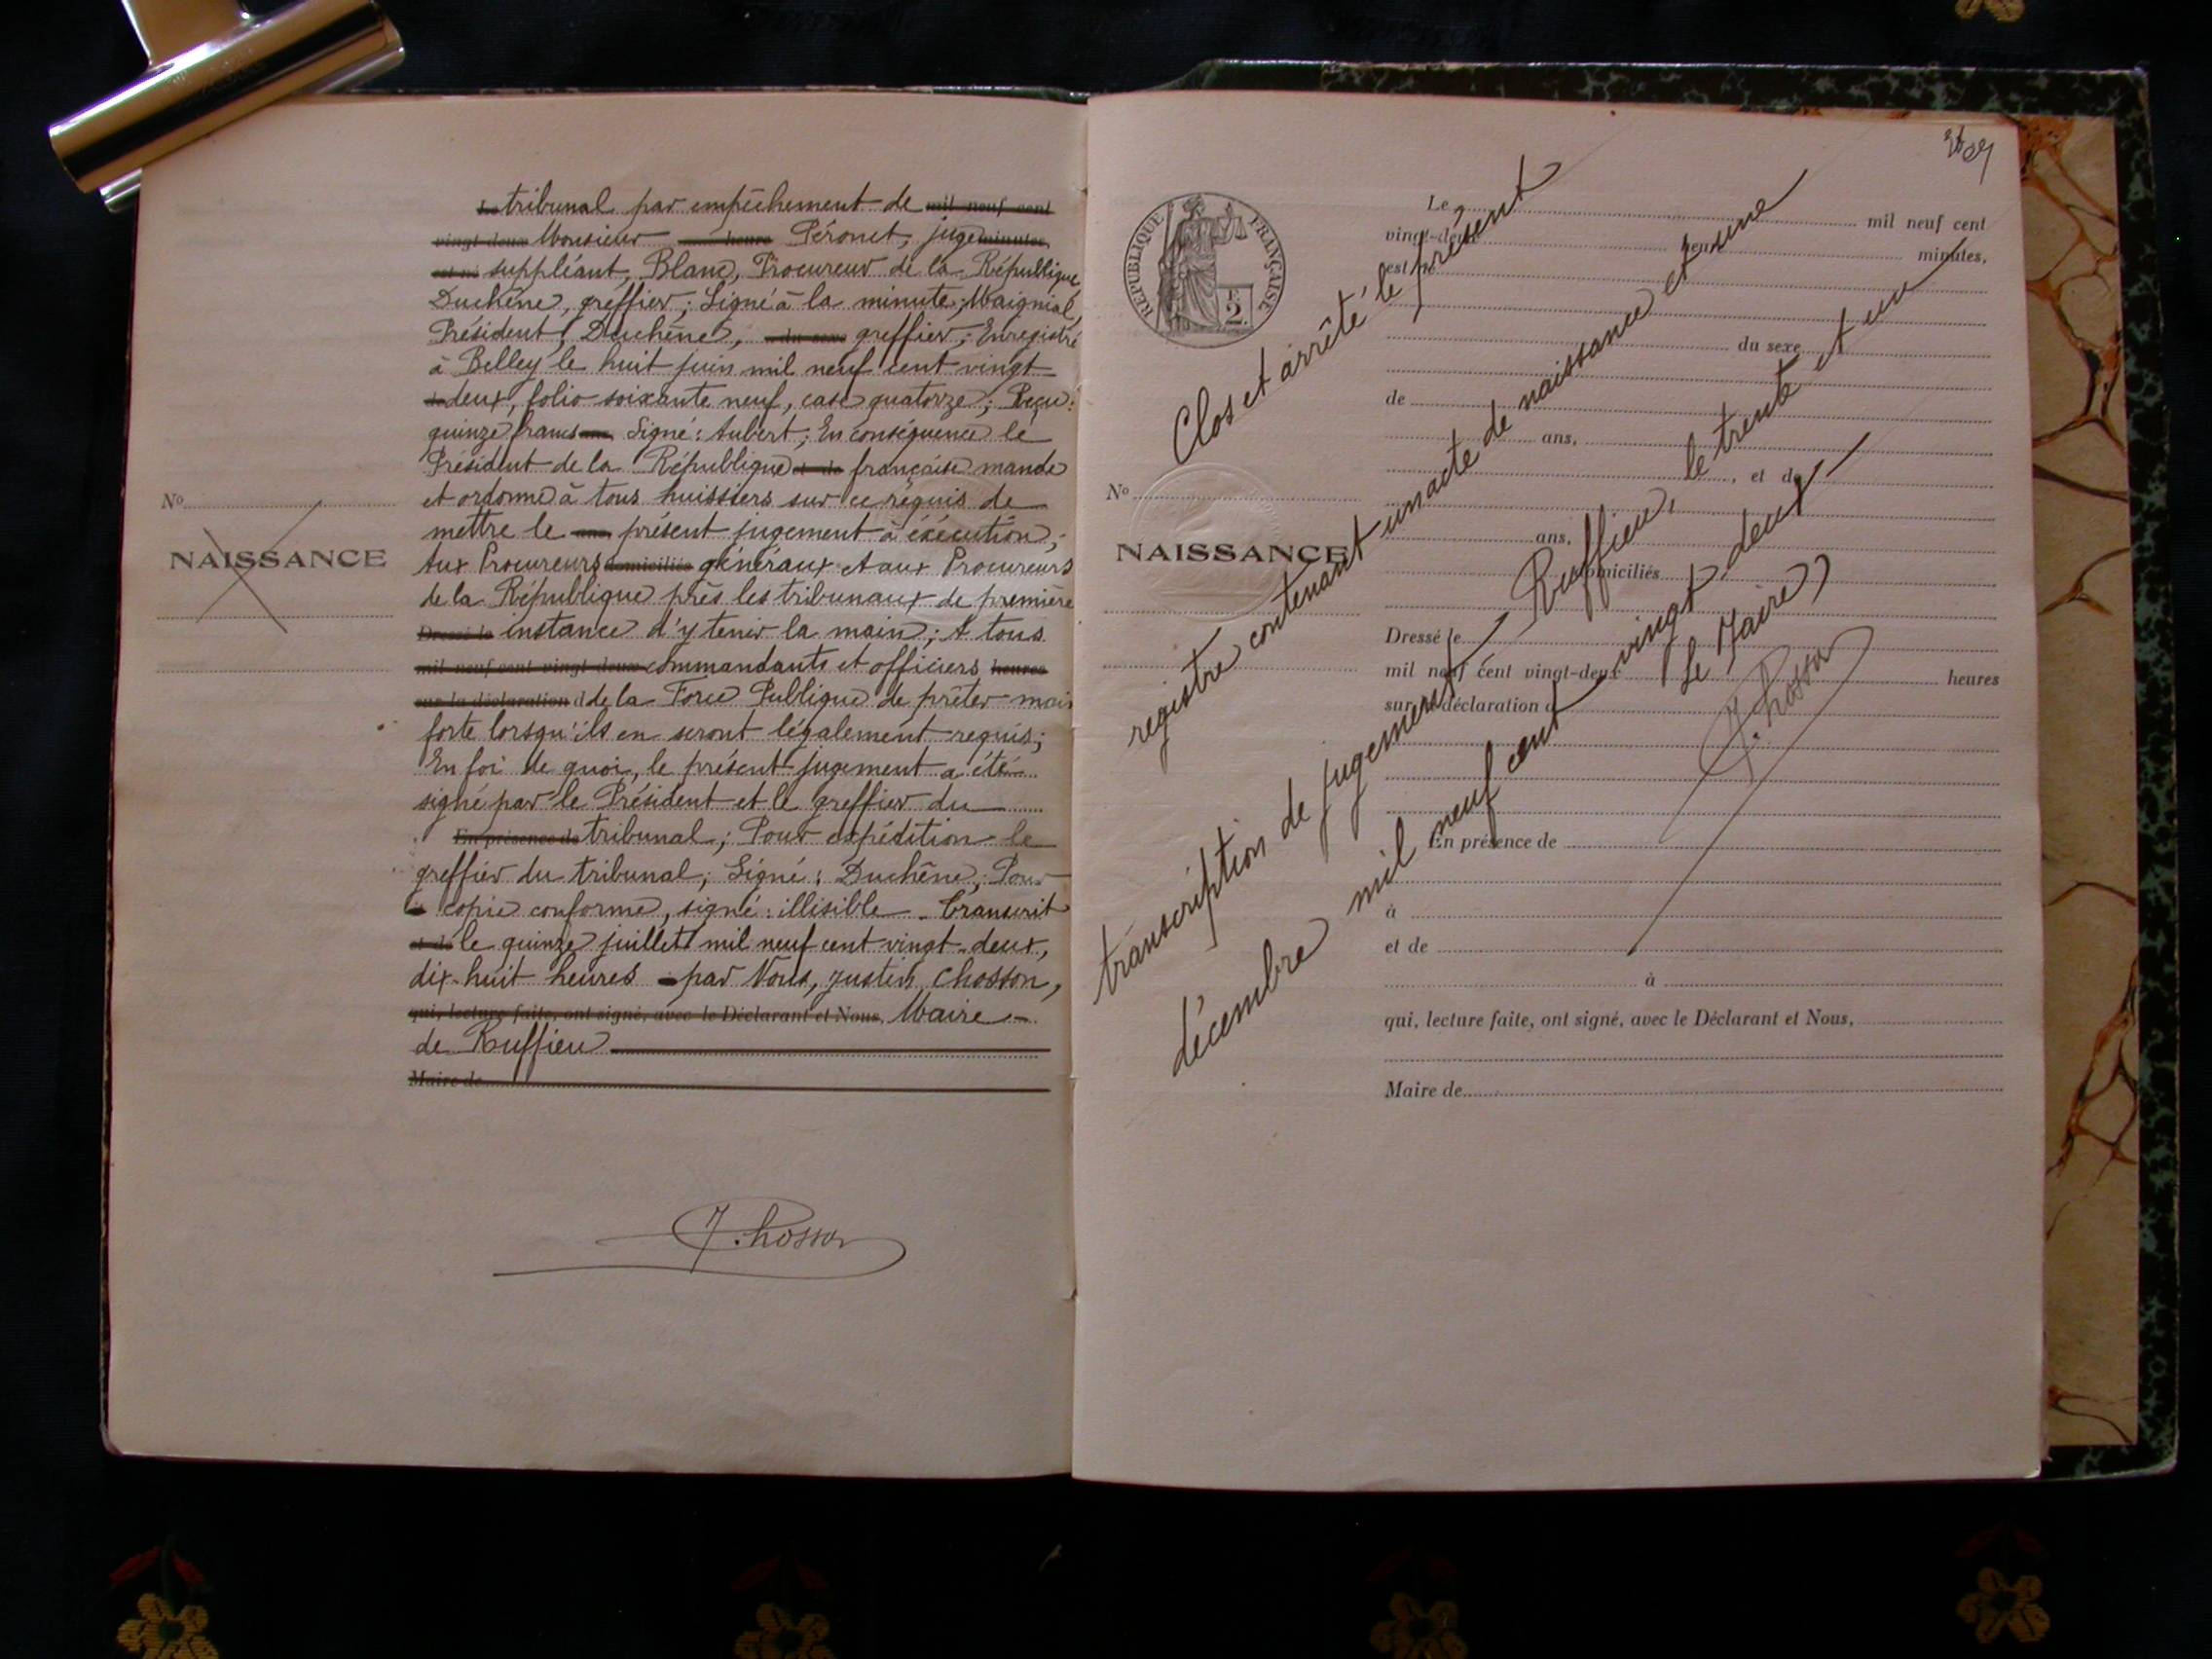 tribunal par empêchement de mil neuf cent
vingt-deux Monsieur heure Péronet, juge minutes,
est né suppléant, Blanc, Procureur de la République
Duchêne, greffier; Signé à la minute; Maignial,
Président, Duchêne, du sexe greffier; Enregistré
à Belley le huit juin mil neuf cent vingt
deux, folio soixante neuf, case quatorze; Reçu:
quinze francs ans, Signé: Aubert; En conséquence le
Président de la République et de française mande
et ordonne à tous huissiers sur ce requis de
mettre le ans, présent jugement à éxécution;
Aux Procureurs domiciliés généraux et aux Procureurs
de la République près les tribunaux de première
Dressé le instance d'y tenir la main; A tous
mil neuf cent vingt-deux commandants et officiers heures
sur la déclaration d de la Force Publique de prêter main
forte lorsqu'ils en seront légalement requis;
En foi de quoi, le présent jugement a été
signé par le Président et le greffier du
En présence de tribunal; Pour expédition le
greffier du tribunal, Signé: Duchêne; Pour
à copie conforme, signé: illisible. Transcrit
et de le quinze juillet mil neuf cent vingt-deux,
dix-huit heures à par Nous, Justin Chosson,
qui, lecture faite, ont signé, avec le Déclarant et Nous, Maire
de Ruffieu
Maire de
J. Chosson
No
NAISSANCE
REPUBLIQUE FRANÇAISE
2
No
NAISSANCE
Le mil neuf cent
vingt-deux heure minutes,
est né
du sexe
de
ans,
, et de
ans,
domiciliés
Dressé le
mil neuf cent vingt-deux heures
sur la déclaration d
En présence de
à
et de
à
qui, lecture faite, ont signé, avec le Déclarant et Nous,
Maire de
Clos et arrêté le présent
registre contenant un acte de naissance et une
transcription de jugement. Ruffieu, le trente et un
décembre mil neuf cent vingt-deux
Le Maire
J. Chosson